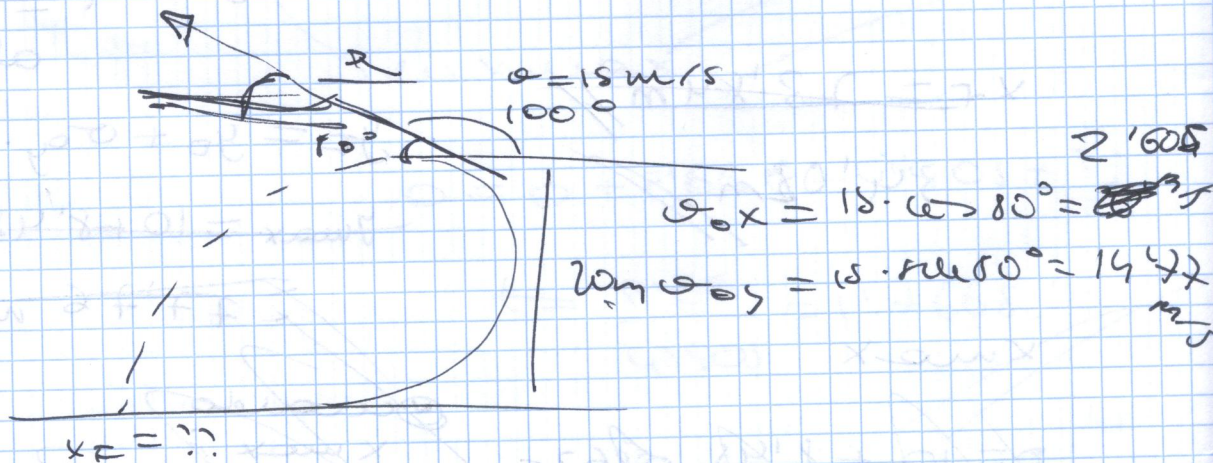 v = 15 m/s
100°
80°
2'605
v₀x = 15 · cos 80° = m/s
20m v₀y = 15 · sen 80° = 14'77 m/s
xF = ??